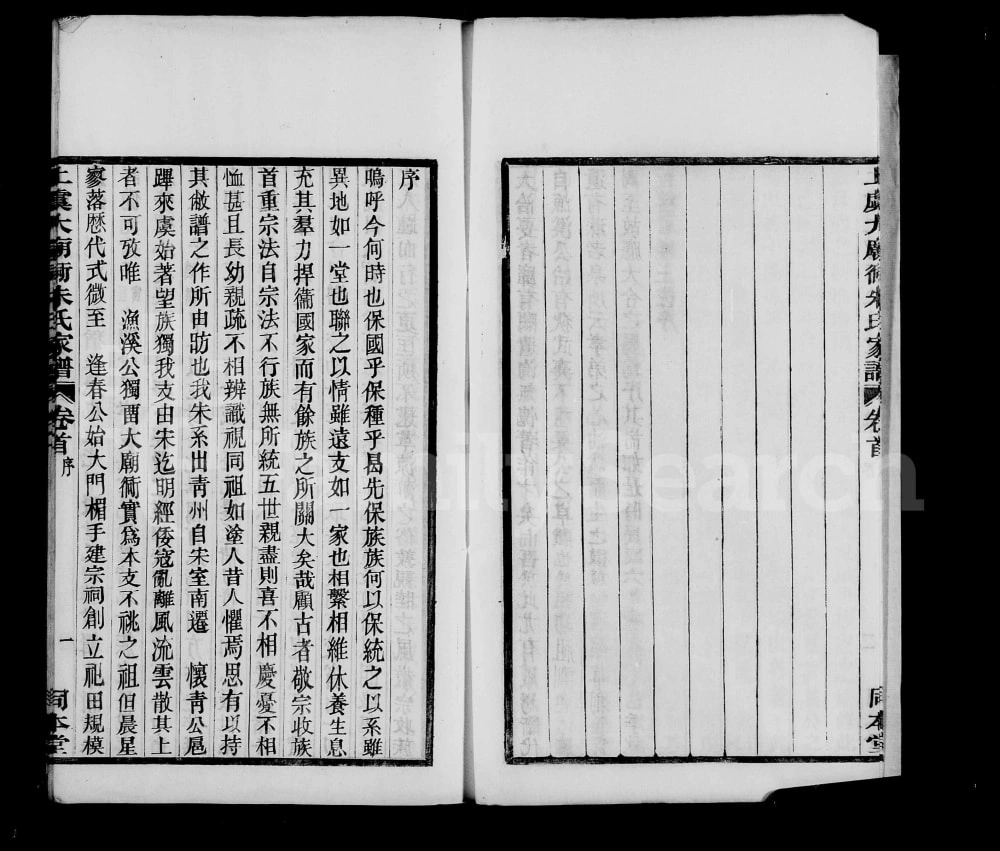 上虞大廟衖朱氏家譜 卷首
同本堂
序
嗚呼今何時也保國乎保種乎曷先保族族何以保統之以系雖
異地如一堂也聯之以情雖遠支如一家也相繫相維休養生息
充其羣力捍衞國家而有餘族之所關大矣哉顧古者敬宗收族
首重宗法自宗法不行族無所統五世親盡則喜不相慶憂不相
恤甚且長幼親疏不相辨識視同祖如塗人昔人懼焉思有以持
其敝譜之作所由昉也我朱系出青州自宋室南遷 懷青公扈
蹕來虞始著望族獨我支由宋迄明經倭寇亂離風流雲散其上
者不可攷唯 漁溪公獨畱大廟衖實爲本支不祧之祖但晨星
寥落歷代式微至 逢春公始大門楣手建宗祠創立祀田規模
上虞大廟衖朱氏家譜 卷首 序 一 同本堂
hit search